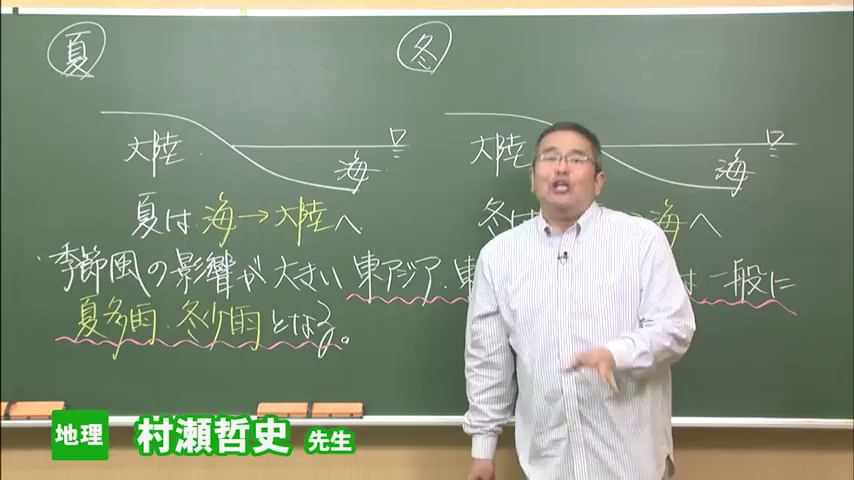 夏
冬
大陸
海
大陸
海
夏は 海→大陸へ
冬は 海へ
・季節風の影響が大きい東アジア・東 は一般に
夏多雨・冬少雨となる。
地理 村瀬哲史 先生